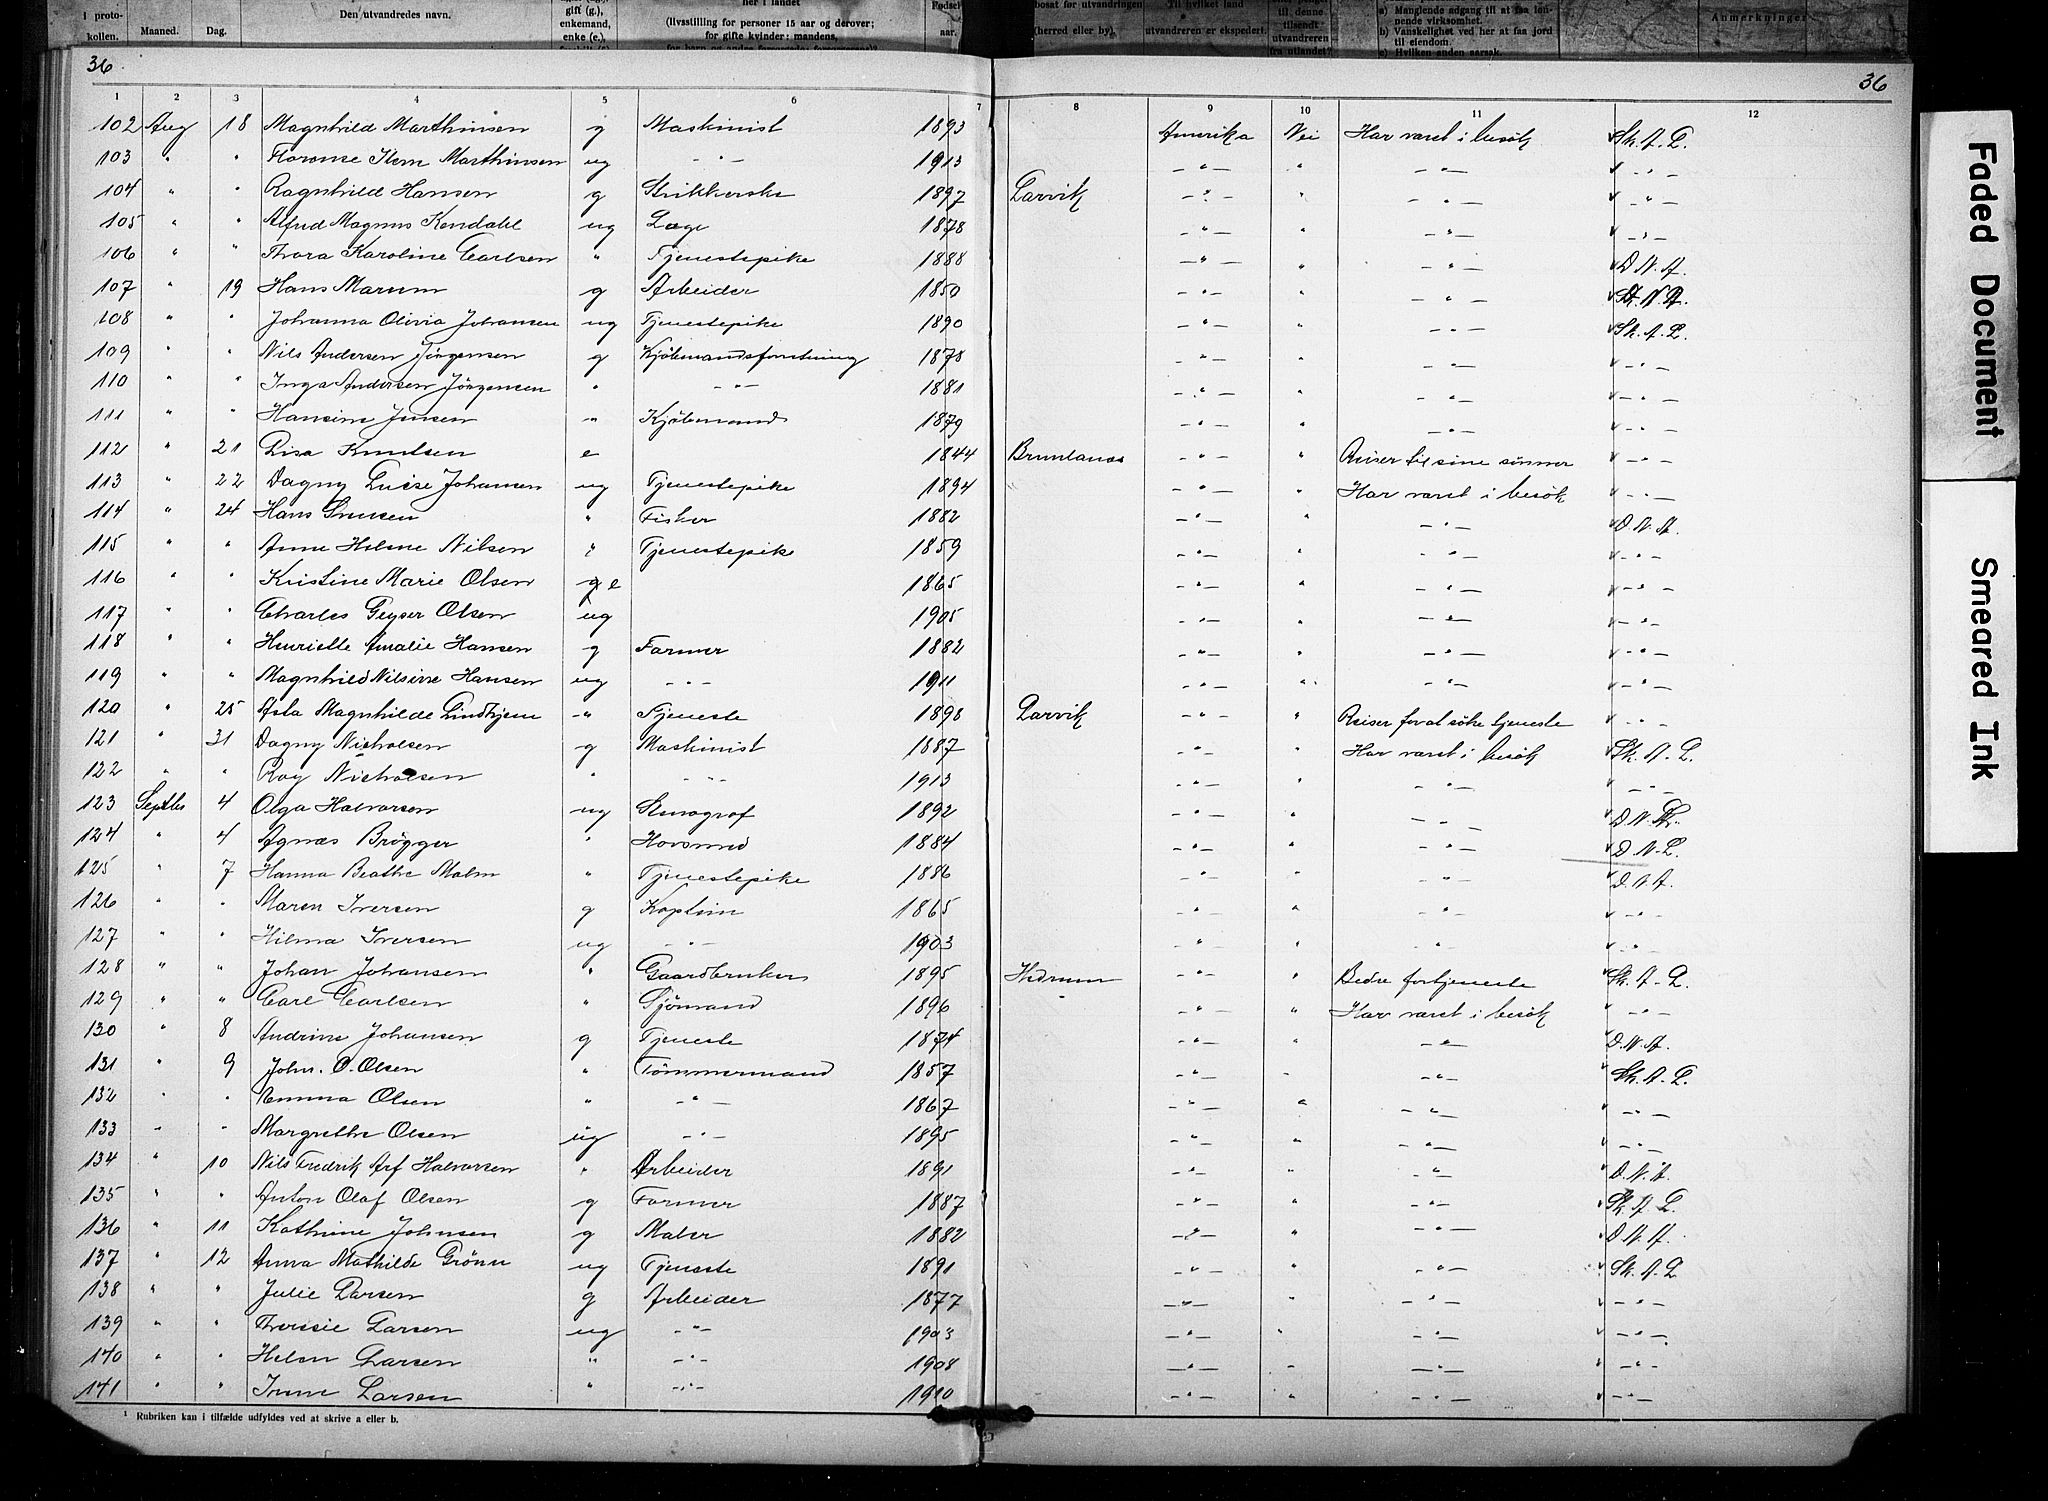 I proto-
kollen.
Maaned.
Dag.
Den utvandredes navn.
gift (g.),
enkemand,
enke (e.),
her i landet
(livsstilling for personer 15 aar og derover;
for gifte kvinder: mandens,
Fødsel
aar.
bosat før utvandringen
(herred eller by).
Til hvilket land
utvandreren er ekspedert.
til denne
tilsendt
utvandreren
fra utlandet?
a) Manglende adgang til at faa løn-
nende virksomhet.
b) Vanskelighet ved her at faa jord
til eiendom.
c) Hvilken anden aarsak.
Anmerkninger.
36 36
1 2 3 4 5 6 7 8 9 10 11 12
102 Aug 18 Magnhild Marthinsen g Maskinist 1893 Amerika Nei Har været i besök Sk. A. L.
103 " " Florense Marthinsen ug -"- 1913 -"- " -"- -"-
104 " " Ragnhild Hansen g Strikkerske 1897 Larvik -"- " -"- -"-
105 " " Alfred Magnus Kendahl ug Læge 1878 -"- " -"- -"-
106 " " Thora Karoline Carlsen " Tjenestepike 1888 -"- " -"- D. N. A.
107 " 19 Hans Marum g Arbeider 1850 -"- " -"- N. A.
108 " " Johanna Olivia Johansen ug Tjenestepike 1890 -"- " -"- Sk. A. L.
109 " " Nils Andersen Jörgensen g Kjöbmandsforretning 1878 -"- " -"- -"-
110 " " Inga Andersen Jörgensen " -"- 1881 -"- " -"- -"-
111 " " Hansine Jensen " Kjöbmand 1879 -"- " -"- -"-
112 " 21 Lisa Knutsen e 1844 Brunlanæs -"- " Reiser til sine sönner -"-
113 " 22 Dagny Luise Johansen ug Tjenestepike 1894 -"- " Har været i besök -"-
114 " 24 Hans " Fisker 1882 -"- " -"- D. N. A.
115 " " Anne Helene Nilsen " Tjenestepike 1859 -"- " -"- -"-
116 " " Kristine Marie Olsen g e 1865 -"- " -"- -"-
117 " " Charles Geyser Olsen ug 1905 -"- " -"- -"-
118 " " Henriette Amalie Hansen g Farmer 1882 -"- " -"- -"-
119 " " Magnhild Hansen ug -"- 1911 -"- " -"- -"-
120 " 25 Asta Magnhilde Lindhjem -"- Tjeneste 1898 Larvik -"- " Reiser for at söke tjeneste -"-
121 " 31 Dagny Nicholsen g Maskinist 1887 -"- " Har været i besök Sk. A. L.
122 " " Roy Nicholsen " -"- 1913 -"- " -"- -"-
123 Septbr 4 Olga Halvorsen ug Stenograf 1892 -"- " -"- D. N.
124 " 4 Agnæs Brögger " 1884 -"- " -"- D. N. L.
125 " 7 Hanna Beathe Malm " Tjenestepike 1886 -"- " -"- D. N. A.
126 " " Maren Iversen g Kaptein 1865 -"- " -"- -"-
127 " " Hilma Iversen ug -"- 1903 -"- " -"- -"-
128 " " Johan Johansen " Gaardbruker 1895 Hedrum -"- " Bedre fortjeneste Sk. A. L.
129 " " Carl Carlsen " Sjömand 1896 -"- " Har været i besök -"-
130 " 8 Andrine Johansen g Tjeneste 1874 -"- " -"- D. N. A.
131 " 9 John. O. Olsen " Tömmermand 1857 -"- " -"- Sk. A. L.
132 " " Emma Olsen " -"- 1867 -"- " -"- -"-
133 " " Margrethe Olsen ug -"- 1895 -"- " -"- -"-
134 " 10 Nils Fredrik Arf Halvorsen " Arbeider 1891 -"- " -"- D. N. A.
135 " " Anton Olaf Olsen g Farmer 1887 -"- " -"- Sk. A. L.
136 " 11 Kathrine Johnsen g Maler 1882 -"- " -"- D. N. A.
137 " 12 Anna Mathilde Grönn ug Tjeneste 1891 -"- " -"- Sk. A. L.
138 " " Julie Larsen g Arbeider 1877 -"- " -"- -"-
139 " " Larsen ug -"- 1903 -"- " -"- -"-
140 " " Helen Larsen " -"- 1908 -"- " -"- -"-
141 " " Larsen " -"- 1910 -"- " -"- -"-
¹ Rubriken kan i tilfælde utfyldes ved at skrive a eller b.
Faded Document
Smeared Ink